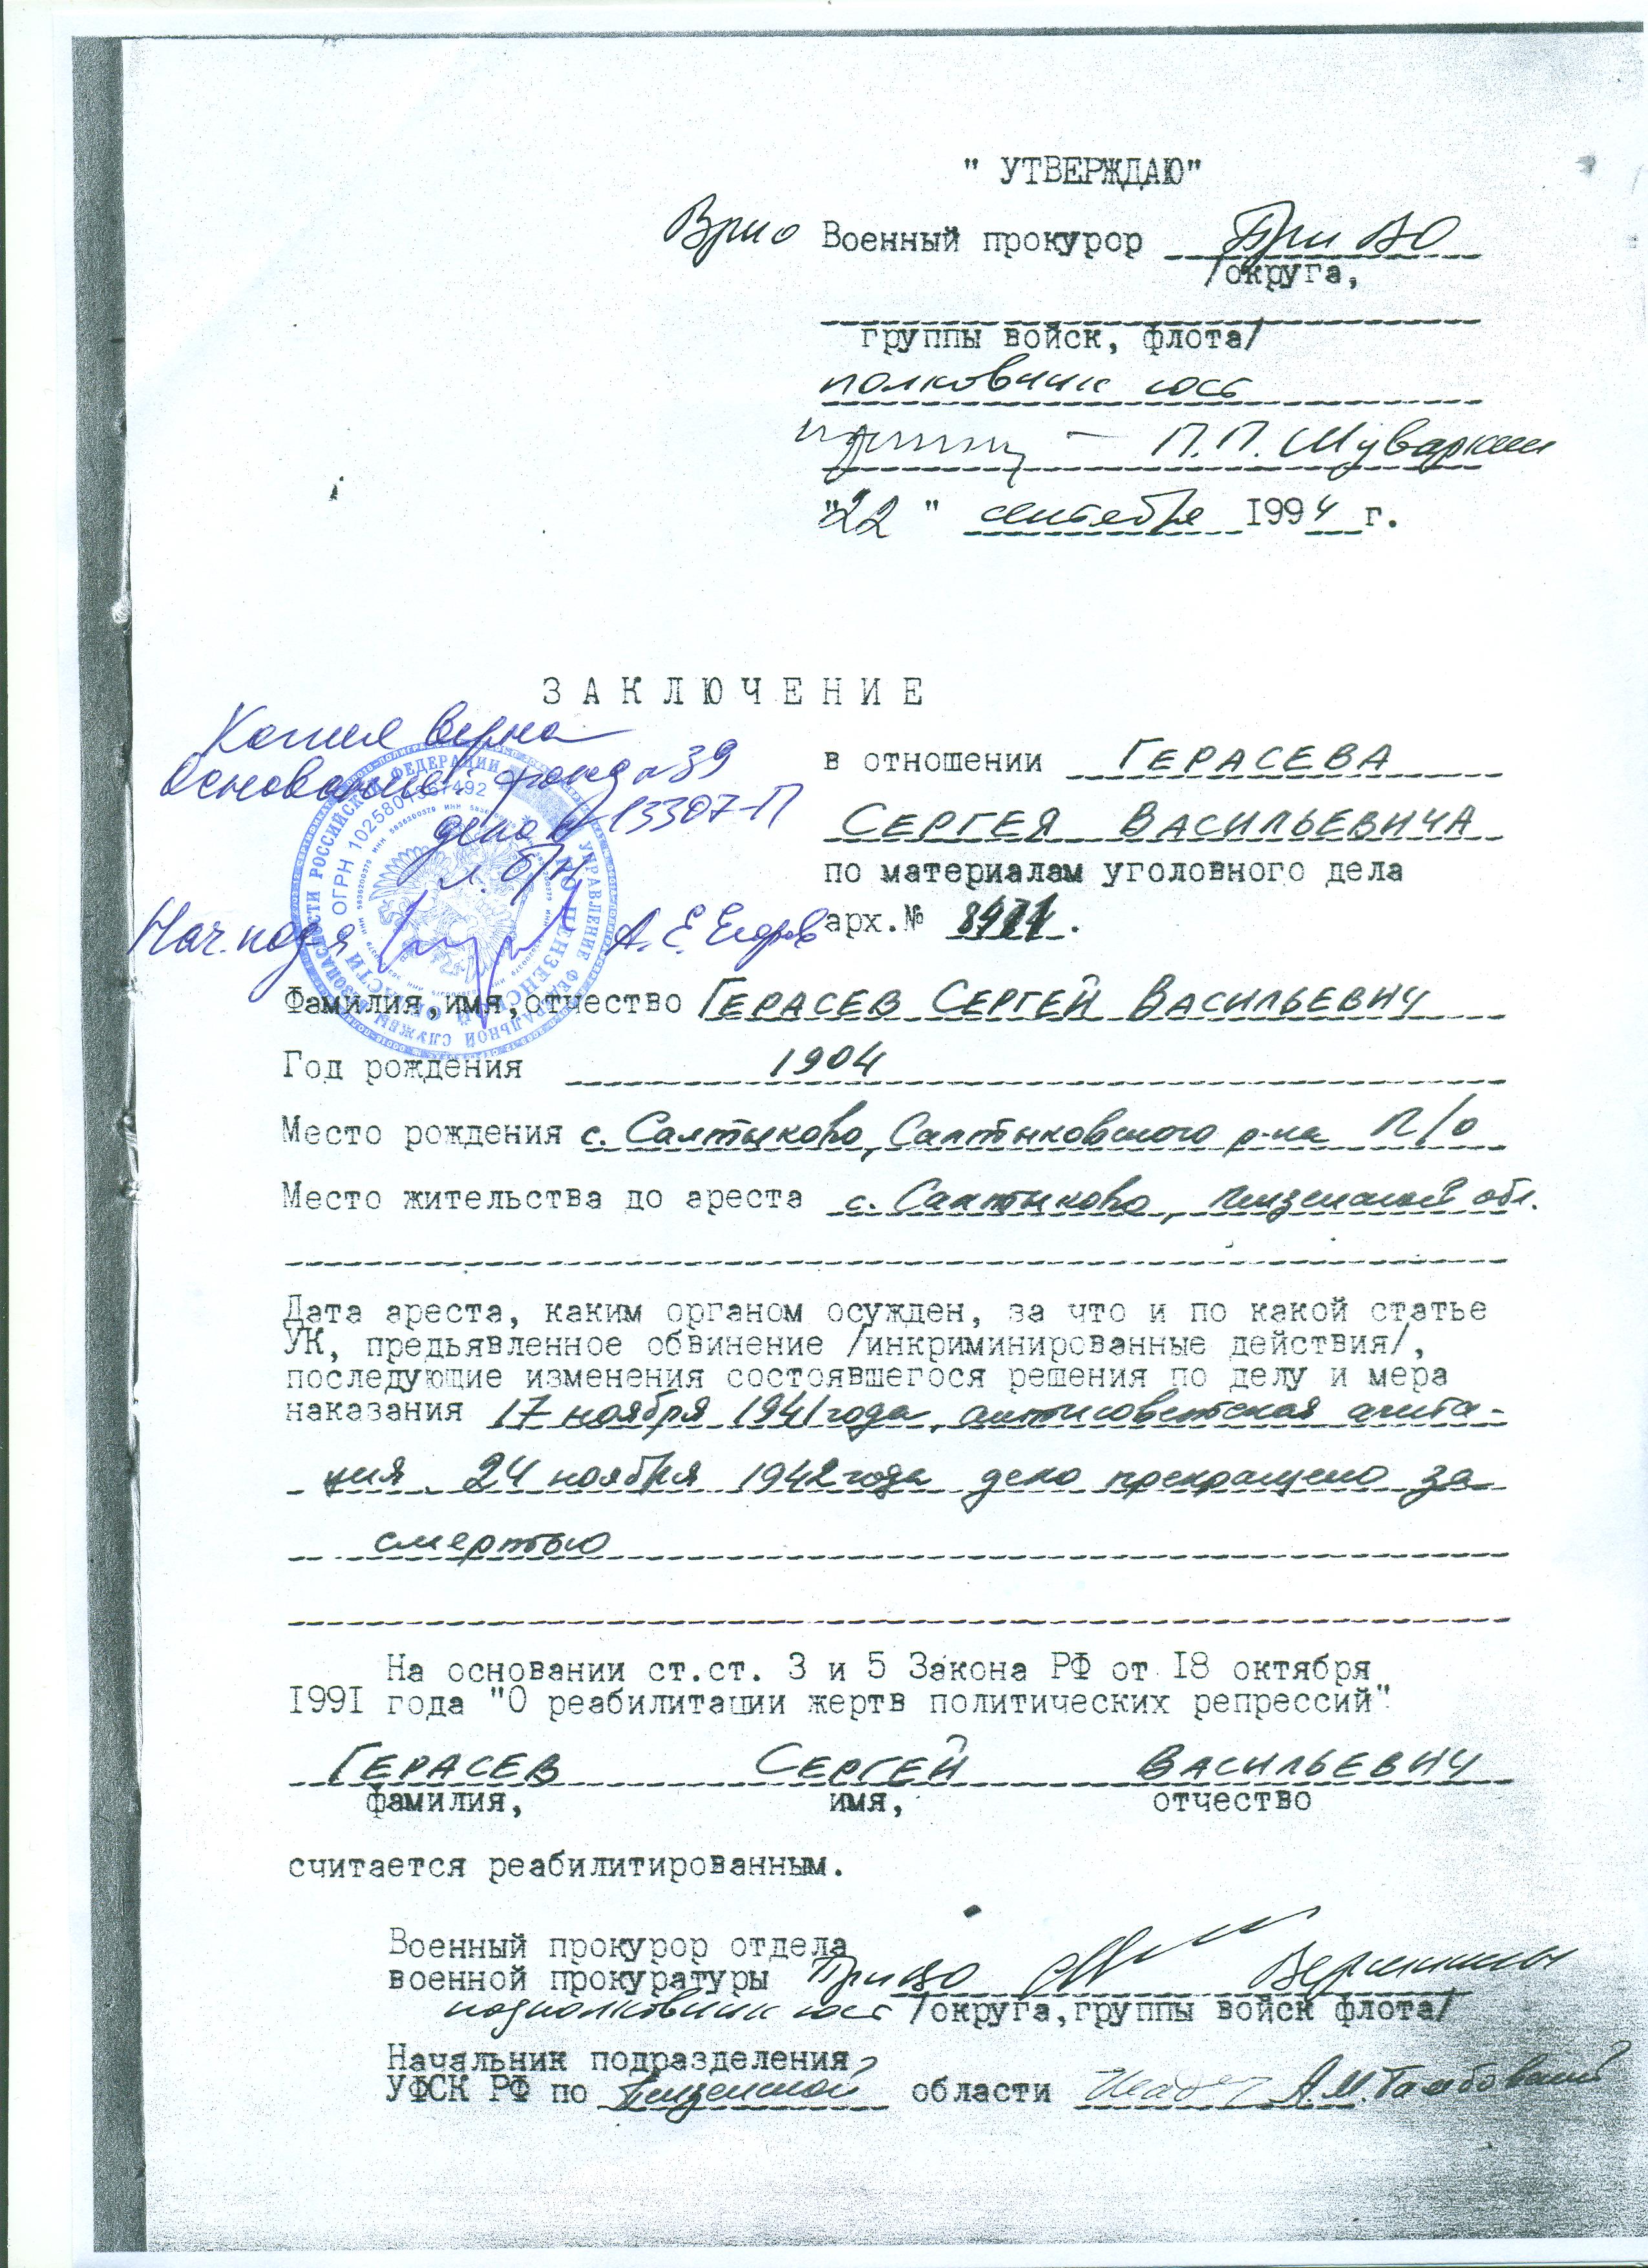 " УТВЕРЖДАЮ"
Врио Военный прокурор ПриВО
/округа,
группы войск, флота/
полковник юст
П.П. Шуваркин
"22" сентября 1994 г.
ЗАКЛЮЧЕНИЕ
Копия верна
Основание: фонд №39
дело № 13307-П
л. б/н
Нач. подр-я А.Е. Егоров
в отношении ГЕРАСЕВА
СЕРГЕЯ ВАСИЛЬЕВИЧА
по материалам уголовного дела
арх.№
УПРАВЛЕНИЕ ФЕДЕРАЛЬНОЙ СЛУЖБЫ БЕЗОПАСНОСТИ РОССИЙСКОЙ ФЕДЕРАЦИИ
ПО ПЕНЗЕНСКОЙ ОБЛАСТИ ОГРН
Фамилия, имя, отчество ГЕРАСЕВ СЕРГЕЙ ВАСИЛЬЕВИЧ
Год рождения 1904
Место рождения с. Салтыково, Салтыковского р-на П/о
Место жительства до ареста с. Салтыково, Пензенской обл.
Дата ареста, каким органом осужден, за что и по какой статье
УК, предьявленное обвинение /инкриминированные действия/,
последующие изменения состоявшегося решения по делу и мера
наказания 17 ноября 1941 года, антисоветская агита-
ция. 24 ноября 1942 года дело прекращено за
смертью
На основании ст.ст. 3 и 5 Закона РФ от 18 октября
1991 года "О реабилитации жертв политических репрессий"
ГЕРАСЕВ СЕРГЕЙ ВАСИЛЬЕВИЧ
фамилия, имя, отчество
считается реабилитированным.
Военный прокурор отдела
военной прокуратуры ПриВО
подполковник юст /округа,группы войск флота/
Начальник подразделения
УФСК РФ по Пензенской области А.М.Тамбовский